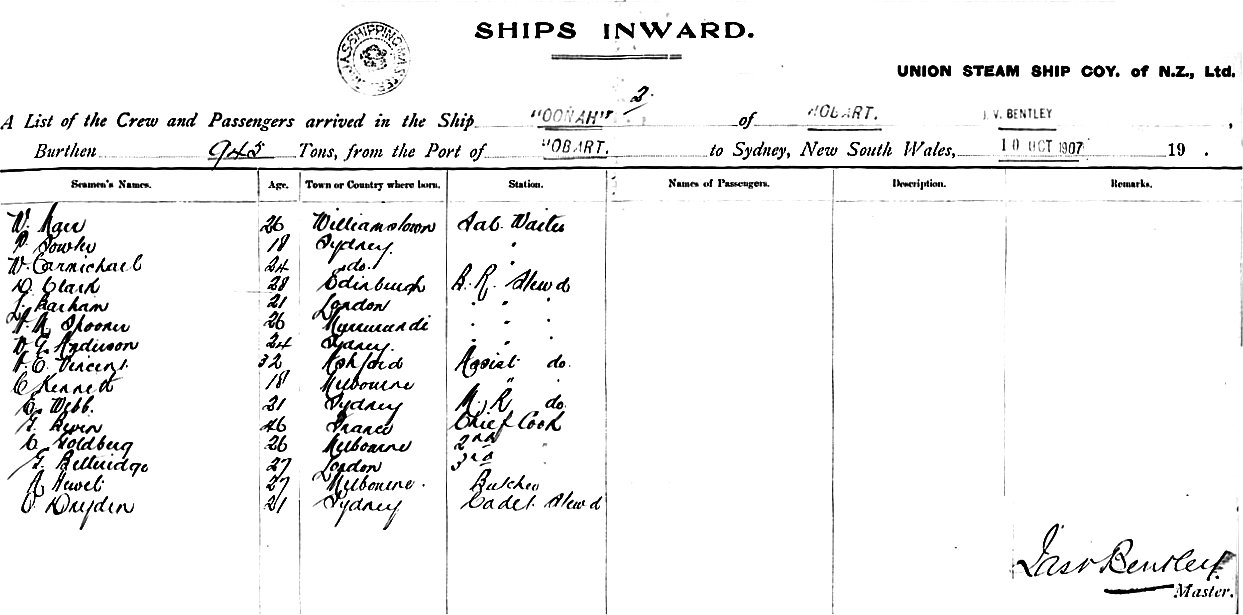 SHIPS INWARD.
UNION STEAM SHIP COY. of N.Z., Ltd.
2
A List of the Crew and Passengers arrived in the Ship "OONAH" of HOBART. J. V. BENTLEY,
Burthen 945 Tons, from the Port of HOBART. to Sydney, New South Wales, 10 OCT 1907 19 .
Seamen's Names. Age. Town or Country where born. Station. Names of Passengers. Description. Remarks.
W. 26 Williamstown Sal. Waiter
18 Sydney "
W. Carmichael 24 do. "
D. Clark 28 Edinburgh B. R. Stewd
L. Barham 21 London " " "
Spooner 26 Murrurundi " " "
Anderson 24 Sydney. " " "
Vincent 32 Ashford Assist do.
C Kennett 18 Melbourne " "
E. Webb. 21 Sydney do.
G. 46 France Chief Cook
C. Goldberg 26 Melbourne 2nd "
G. Betteridge 27 London 3rd "
27 Melbourne. Butcher
Dryden 21 Sydney Cadet Stewd
Jas V Bentley
Master.